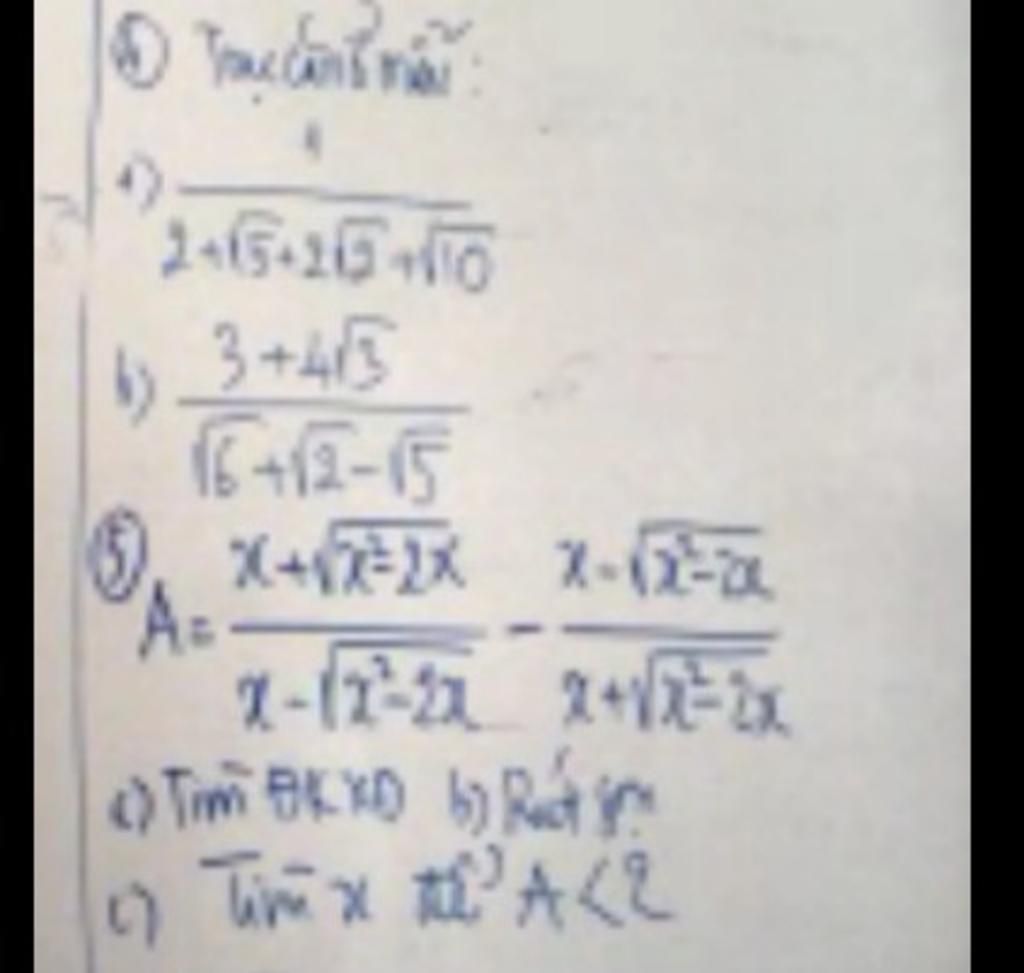 Trục căn ở mẫu:
a) 1 / (2+√5+2√2+√10)
b) (3+4√3) / (√6+√2-√5)
⑤ A = (x+√(x²-2x)) / (x-√(x²-2x)) - (x-√(x²-2x)) / (x+√(x²-2x))
a) Tìm ĐKXĐ b) Rút gọn
c) Tìm x để A<2